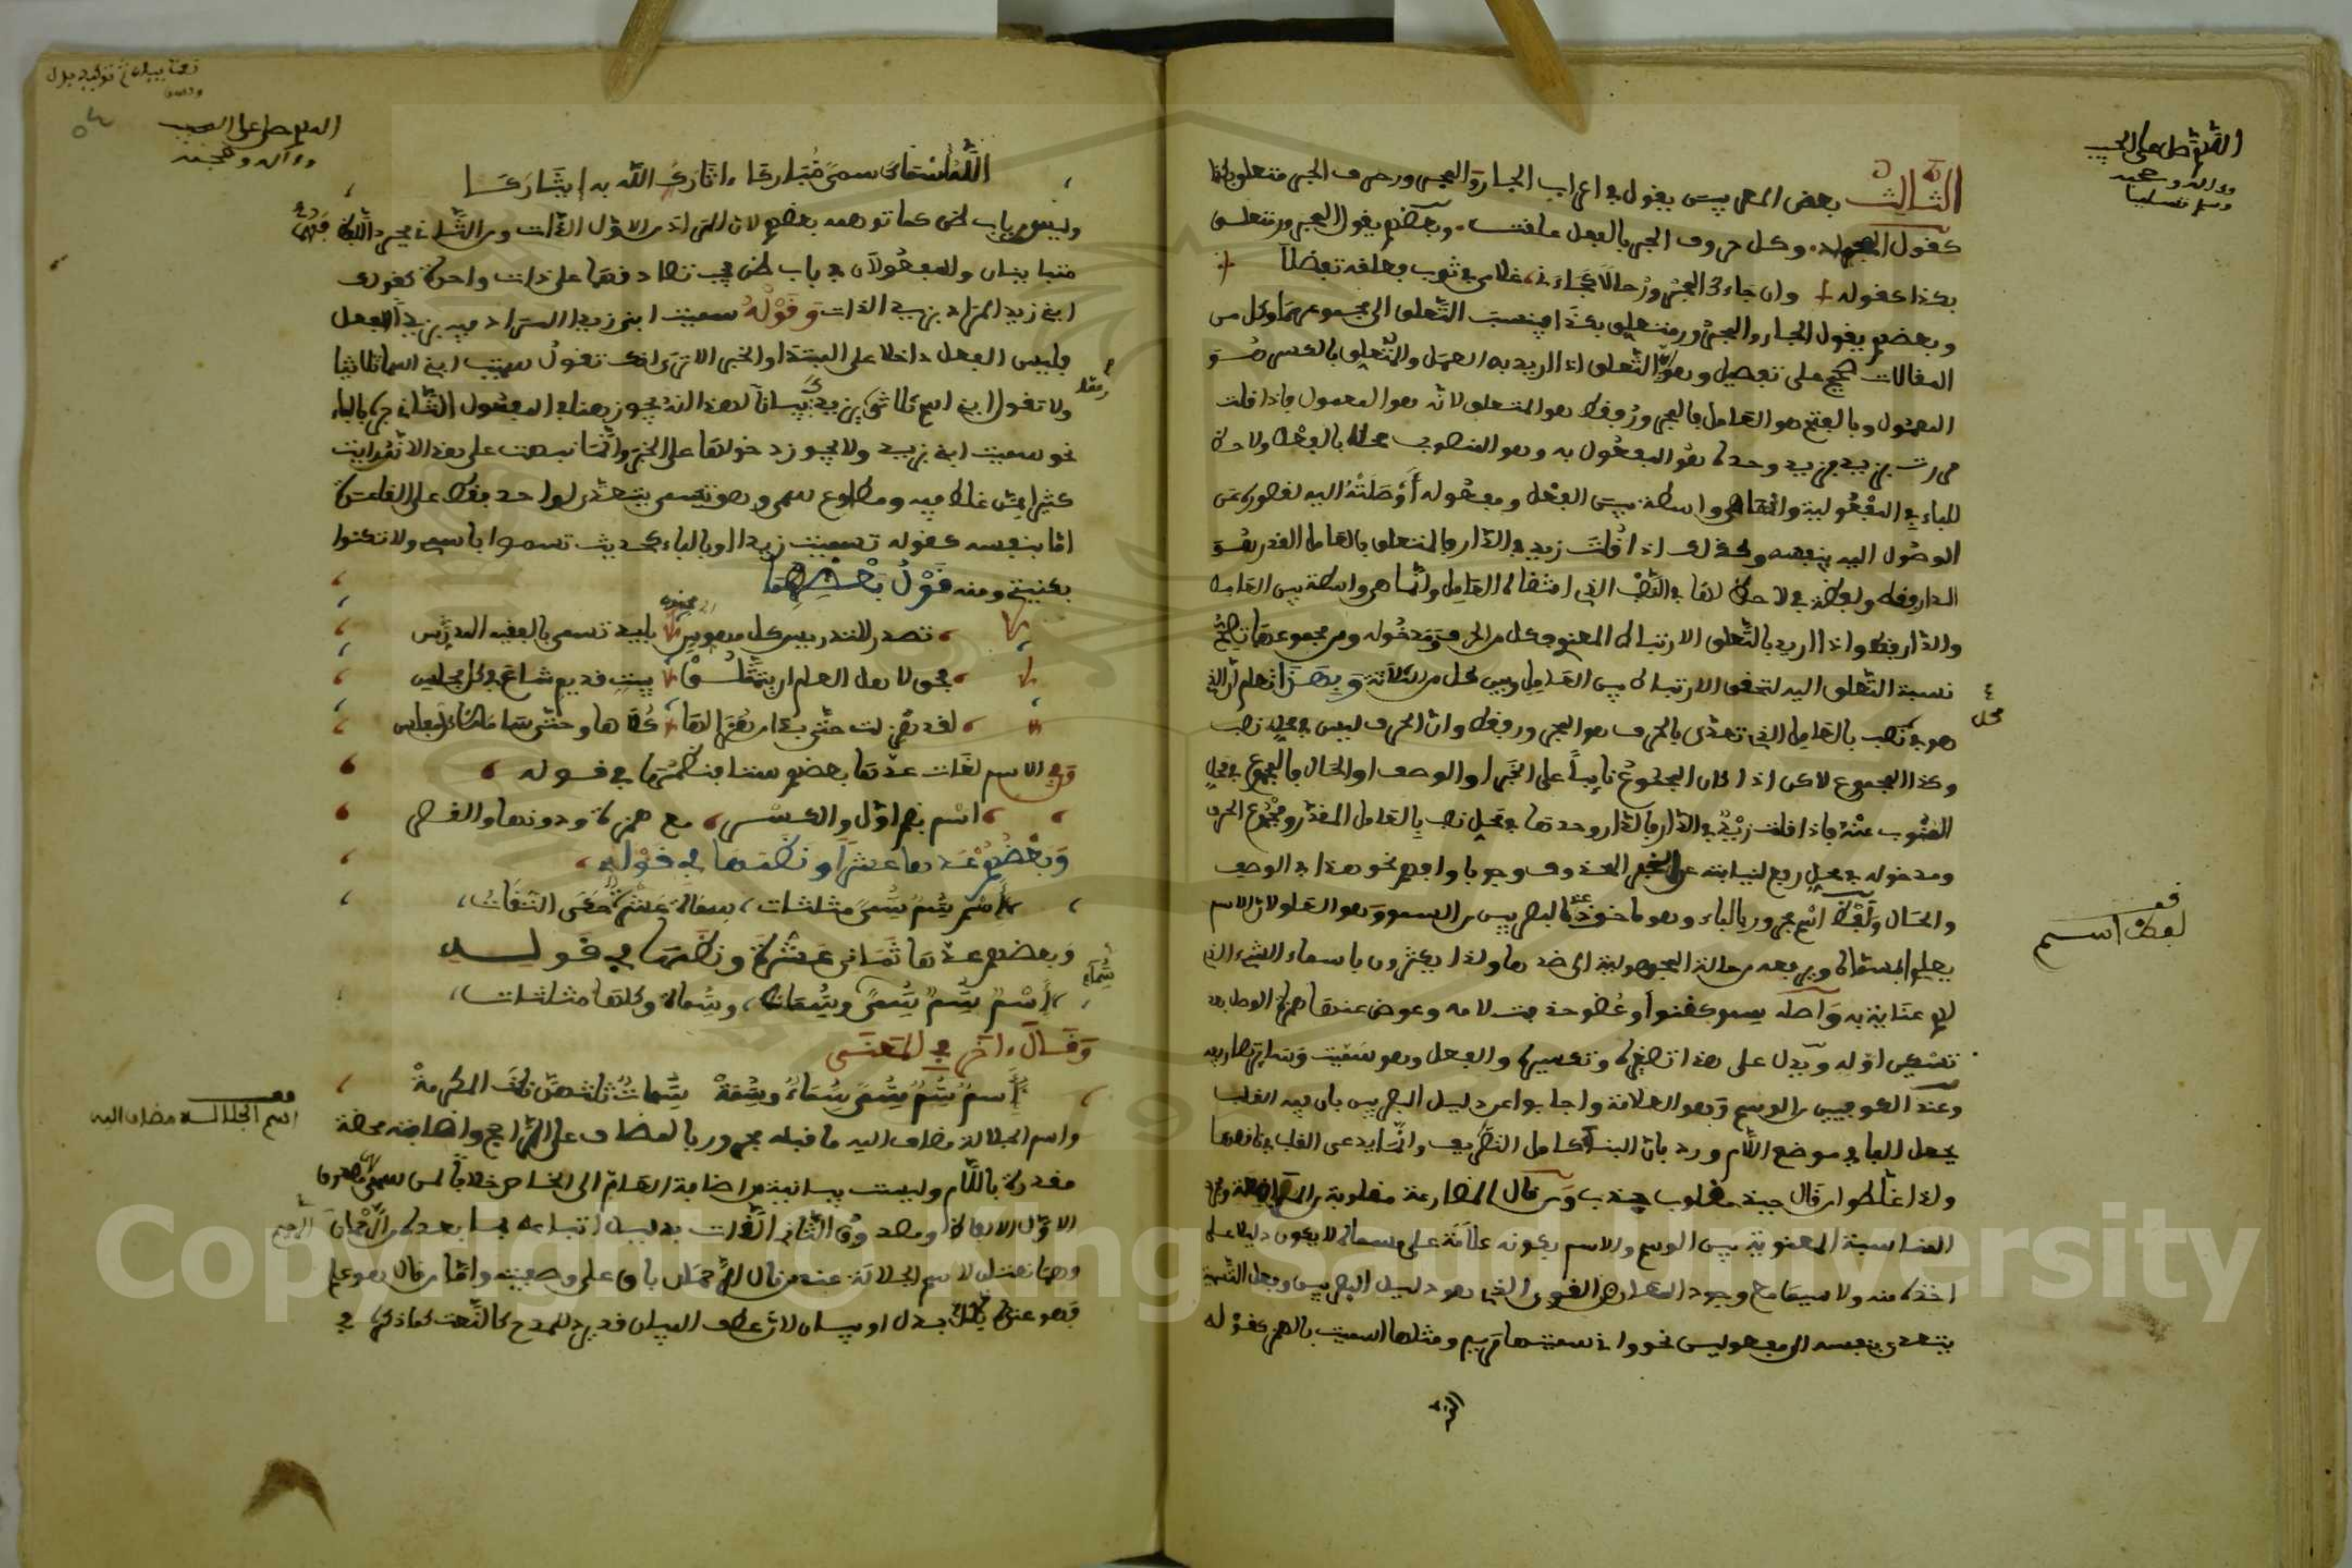 اللهم صل على الحبيب
وءاله وصحبه
وسلم تسليما
الثالث بعض المعربين يقول في اعراب الجار والمجرور حرف الجر متعلق بكذا
كقول المجراد وكل حروف الجر بالفعل علقت وبعضهم يقول المجرور متعلق
بكذا كقوله وان جاءك المجرور حالا كجاءني غلامي في ثوب فعلقه تفضلا
وبعضهم يقول الجار والمجرور متعلق بكذا فينسب التعلق الى مجموعهما وكل من
المقالات صحيح على تفصيل وهو التعلق اذا اريد به العمل والمتعلق بالكسر هو
المعمول وبالفتح هو العامل فالمجرور فقط هو المتعلق لانه هو المعمول فاذا قلت
مررت بزيد فزيد وحده هو المفعول به وهو المنصوب محلا بالفعل ولا حظ
للباء في المفعولية وانما هي واسطة بين الفعل ومفعوله أوصلته اليه لقصوره عن
الوصول اليه بنفسه وكذلك اذا قلت زيد في الدار فالمتعلق بالعامل المقدر هو
الدار فقط ولفظة في لا حظ لها في النصب الذي اقتضاه العامل وانما هي واسطة بين العامل
والدار فقط واذا اريد بالتعلق الارتباط المعنوي فكل من الحرف ومدخوله ومن مجموعهما تصح
نسبة التعلق اليه لتحقق الارتباط بين العامل وبين كل من الثلاثة وبهذا تعلم ان الذي
هو في نصب بالعامل الذي تعدى بالحرف هو المجرور فقط وان الحرف ليس في محل نصب
محل
وكذا المجموع لاكن اذا كان المجموع نايبا على الخبر او الوصف او الحال فالمجموع في محل
المنوب عنه فاذا قلت زيد في الدار فالدار وحدها في محل نصب بالعامل المقدر ومجموع الحرف
ومدخوله في محل رفع لنيابته عن الخبر المحذوف وجوبا وافهم نحو هذا في الوصف
والحال ولفظ اسم مجرور بالباء وهو ماخوذ عند البصريين من السمو وهو العلو لان الاسم
قف
لفظ اسم
يعلي المسماه ويرفعه من حالة المجهولية الى ضدها ولذا يكثرون باسماء الشيء الذي
لهم عناية به وأصله سمو كقنو أو عضو حذفت لامه وعوض عنها همزة الوصل بعد
تسكين اوله ويدل على هذا تصغيره وتكسيره والفعل وهو سميت
وعند الكوفيين من الوسم وهو العلامة واجابوا عن دليل البصريين بان فيه القلب
يجعل الفاء في موضع اللام ورد بان البناء كامل التصريف وانما يدعى القلب في ناقصها
ولذا غلطوا من قال جبذ مقلوب جذب ومن قال المضارعة مقلوبة
المناسبة المعنوية بين الوسم والاسم بكونه علامة على مسماه لا يكون دليلا على
اخذه منه ولا سيما مع وجود المعارض القوي الذي هو دليل البصريين وفعل التسمية
يتعدى بنفسه الى مفعولين نحو واني سميتها مريم ومثلها اسميت بالهمز كقوله
نعت بيان توكيد بدل
اللهم صل على الحبيب
وءاله وصحبه
الله أسماك سمى مباركا ءاثارك الله به إيثاركا
وليس من باب ظن كما توهمه بعضهم لان المراد من الاول الذات ومن الثاني مجرد اللفظ فهما
متباينان والمفعولان في باب ظن يجب تصادقهما على ذات واحدة كقولك
ابني زيد المراد بزيد الذات وقوله سميت ابني زيدا المراد فيه بزيد
فليس الفعل داخلا على المبتدا والخبر الا ترى انك تقول سميت ابني اسما ثلاثيا
ولا تقول ابني اسم ثلاثي لهذا انه يجوز هنا في المفعول الثاني جره بالباء
نحو سميت ابني بزيد ولا يجوز دخولها على الخبر وانما نبهت على هذا لاني رايت
كثيرا ممن غلط فيه ومطاوع سمى وهو تسمى يتعدى لواحد فقط على القاعدة
اما بنفسه كقوله تسميت زيدا او بالباء كحديث تسموا باسمي ولا تكنوا
بكنيتي ومنه قول بعضهم
تصدر للتدريس كل مهوس بليد تسمى بالفقيه المدرس
فحق لاهل العلم ان يتمثلوا ببيت قديم شاع في كل مجلس
لقد هزلت حتى بدا من هزالها كلاها وحتى سامها كل مفلس
وفي الاسم لغات عدها بعضهم ستا فنظمها في قوله
اسم بضم اول والكسر مع همزة ودونها والقصر
وبعضهم عدها عشرا ونظمها في قوله
اسم سم سمى مثلثات سماة عشرة
وبعضهم عدها ثماني عشرة ونظمها في قوله
اسم سم سمى وسمات وسماة وكلها مثلثات
وقال ءاخر في المعنى
واسم الجلالة مضاف اليه ما قبله مجرور بالمضاف على الراجح واضافته محضة
قف
اسم الجلالة مضاف اليه
مقدرة باللام وليست بيانية من اضافة العام الى الخاص خلافا لمن
الاول الالفاظ ومصدوق الثاني الذات بدليل اتباعه بما بعده من الرحمان
الرحيم
وهما نعتان لاسم الجلالة عند من قال الرحمان باق على وصفيته واما من قال هو علم
فهو عنده بدل او بيان لان عطف البيان قد يرد للمدح كالنعت كما ذكره في
Copyright © King Saud University